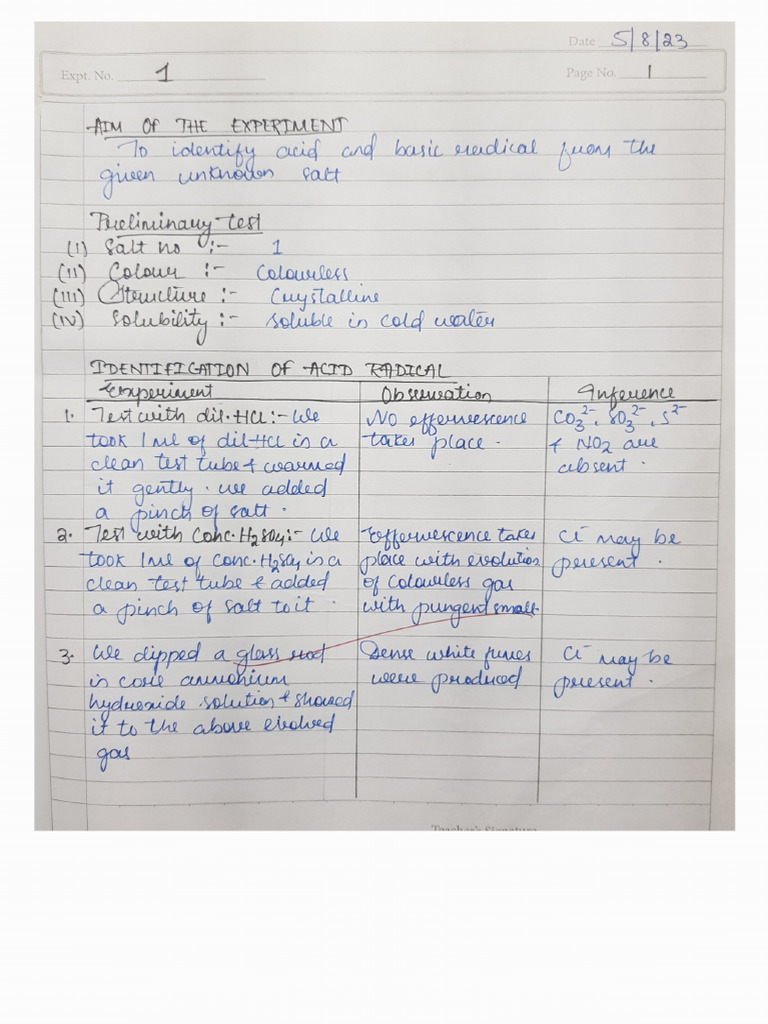 Date 5/8/23
Expt. No. 1
Page No. 1
AIM OF THE EXPERIMENT
To identify acid and basic radical from the
given unknown salt
Preliminary test
(I) Salt no :- 1
(II) Colour :- Colourless
(III) Structure :- Crystalline
(IV) Solubility :- Soluble in cold water
IDENTIFICATION OF ACID RADICAL
Experiment Observation Inference
1. Test with dil. HCl :- We
took 1 ml of dil HCl in a
clean test tube & warmed
it gently. we added
a pinch of salt.
No effervescence
takes place.
CO₃²⁻, SO₃²⁻, S²⁻
& NO₂ are
absent.
2. Test with Conc. H₂SO₄:- We
took 1 ml of conc. H₂SO₄ in a
clean test tube & added
a pinch of salt to it.
Effervescence takes
place with evolution
of colourless gas
with pungent smell.
Cl⁻ may be
present.
3. We dipped a glass rod
in conc ammonium
hydroxide solution & showed
it to the above evolved
gas
Dense white fumes
were produced
Cl⁻ may be
present.
Teacher's Signature